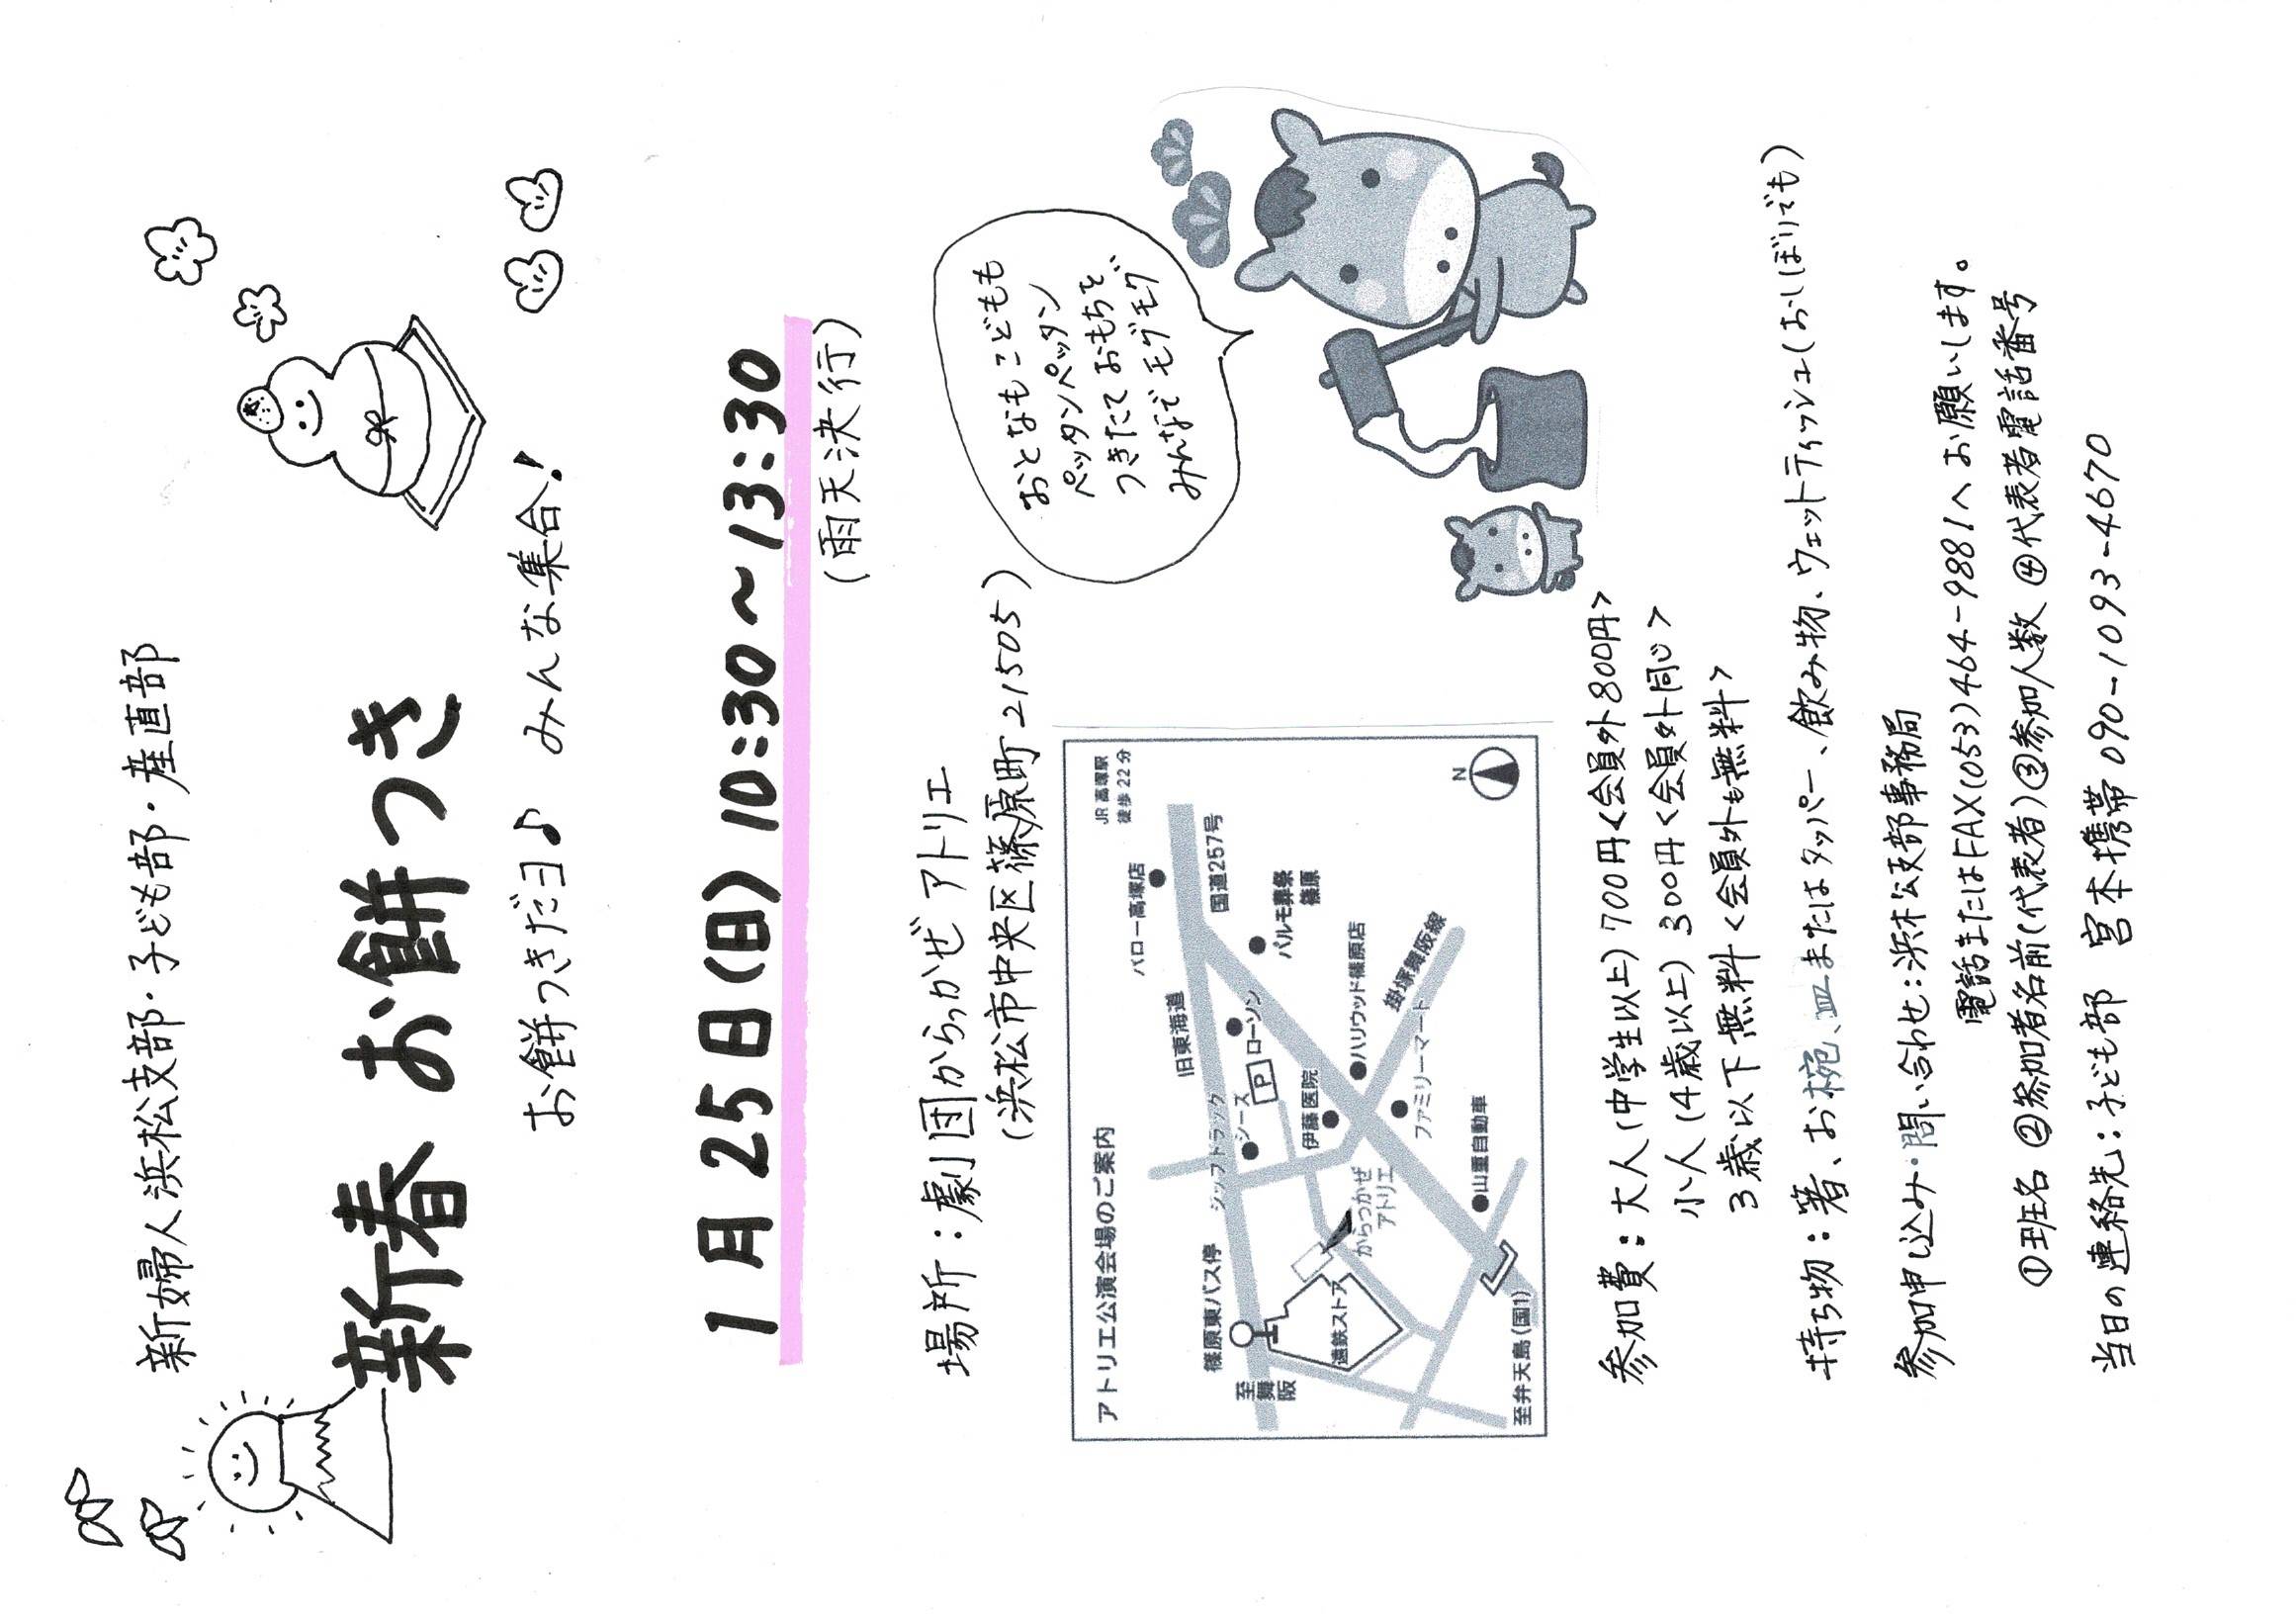 新婦人浜松支部・子ども部・産直部
新春 お餅つき
お餅つきだヨ♪ みんな集合!
1月25日(日) 10:30〜13:30
(雨天決行)
場所：劇団からっかぜ アトリエ
(浜松市中央区篠原町21505)
おとなもこどもも
ペッタンペッタン
つきたておもちを
みんなでモグモグ
アトリエ公演会場のご案内
JR高塚駅
徒歩22分
バロー高塚店
国道257号
旧東海道
パルモ葬祭
篠原
ローソン
P
ハリウッド篠原店
掛塚舞阪線
ジップドラッグ
シーズ
伊藤医院
ファミリーマート
篠原東バス停
からっかぜ
アトリエ
山重自動車
至
舞
阪
遠鉄ストア
至弁天島(国1)
N
参加費：大人(中学生以上) 700円<会員外800円>
小人(4歳以上) 300円<会員外同じ>
3歳以下無料<会員外も無料>
持ち物：箸、お椀、皿またはタッパー、飲み物、ウェットティッシュ(おしぼりでも)
参加申し込み・問い合わせ：浜松支部事務局
電話またはFAX(053)464-9881へお願いします。
①班名 ②参加者名前(代表者)③参加人数 ④代表者電話番号
当日の連絡先：子ども部 宮本携帯090-1093-4670